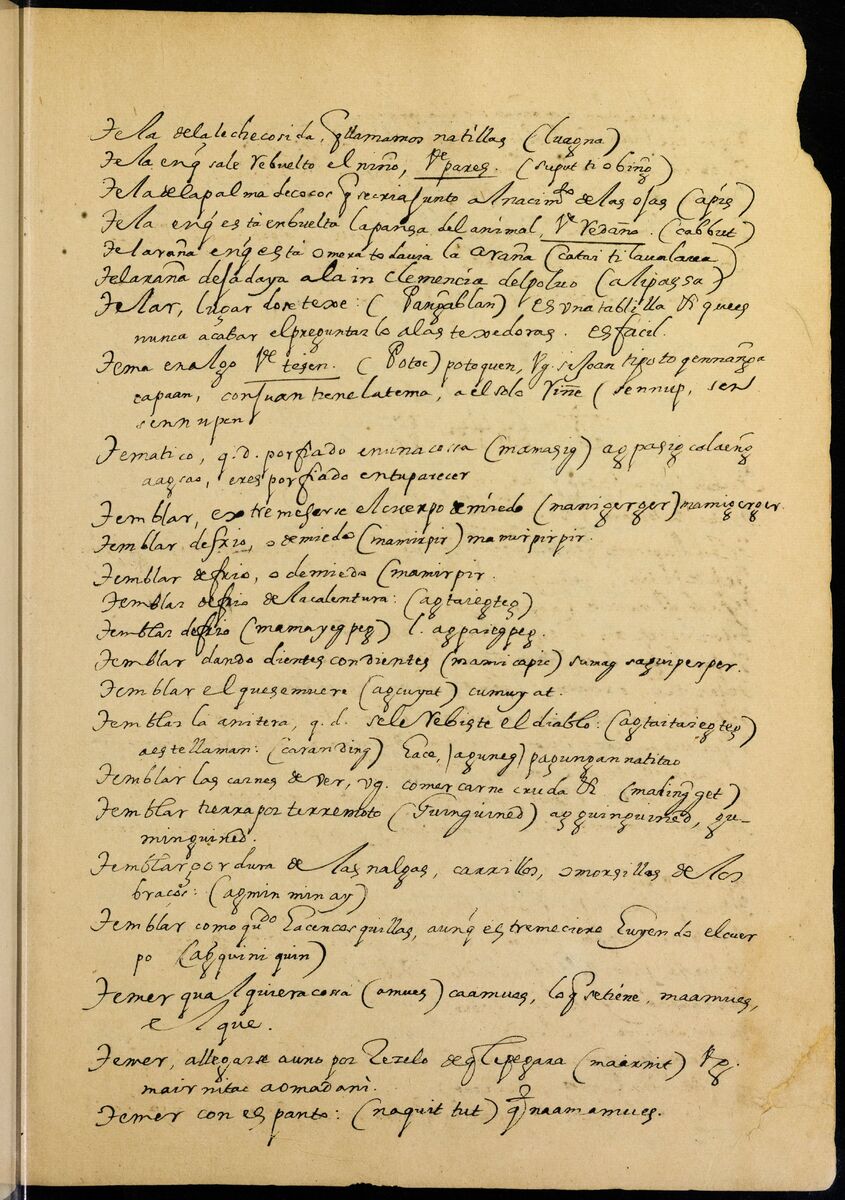 Tela dela leche cosida, q llamamos natillas (luagna)
Tela enq sale rebuelto el niño, Vᵉ pares. (suput ti obing)
Tela dela palma de cocos q se cria junto al nacimᵗᵒ de las ojas (apis)
Tela enq està enbuelta la pansa del animal, Vᵉ Vedaña. (cabbut)
Tela raña enq està o mora todauia la araña (catai ti laualaua)
Telaraña dejada ya a la in clemencia del poluo (alipassa)
Telar, lugar donde texe: ( Pangablan) es vna tablilla & que es
nunca acabar el preguntarlo a las texedoras. es facil.
Tema en algo Vᵉ tejen. ( Potoc) potoquen, Vg. se Joan ti potoquennanga
capaan, con Juan tiene la tema, a el solo riñe ( sennup, sen
sennupen
Tematico, q.d. porfiado en una cossa (mamasig) agpasig colaeng
aagsao, eres porfiado en tu parecer
Temblar, extremeserse el cuerpo de miedo (manigerger) mamigerger.
Temblar de frio, o de miedo (mamirpir) mamirpirpir.
Temblar de frio, o de miedo (mamirpir.
Temblar de frio de la calentura: (agtaiegteg)
Temblar de frio (mamayegpeg) l. agpaiegpeg.
Temblar dando dientes con dientes (mamicapic) sumag saguiperper.
Temblar el que se muere (agcuyat) cumuyat.
Temblar la anitera, q.d. se le rebiste el diablo: (agtaitaiegteg)
a este llaman: (caranding) Eace, (aguneg) pagungan natitao
Temblar las carnes de ver, vg. comer carne cruda & (making get)
Temblar tierra por terremoto (Guinguined) agguinguined, gu-
minguined.
Temblar gordura de las nalgas, carrillos, o morsillos de los
braços: (agminminay)
Temblar como quᵈᵒ hacen cosquillas, aunq es tremecerse huyendo el cuer
po (agquiniquin)
Temer qualquiera cossa (amues) caamues, lo q se tiene, maamues,
el que.
Temer, allegarse a uno por rezelo de q le pegara (maairnit) Vg.
mairnitac aomadani.
Temer con espanto: (naquit tut) q naamamues.